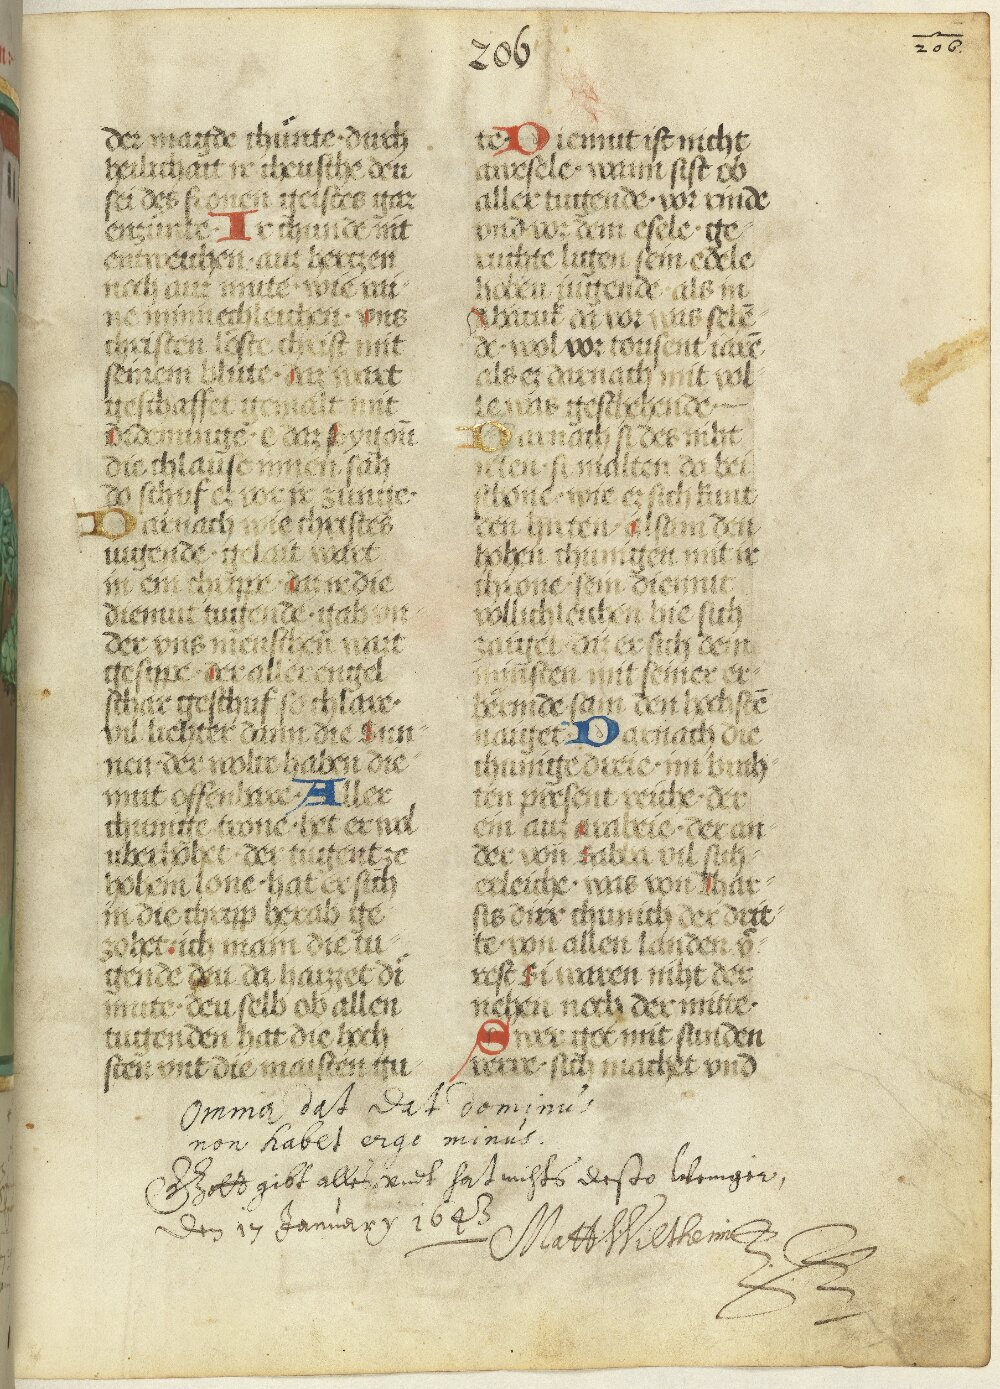 206
206.
der magde chunte · durch
heilichait ir cheusche den
sei des sconen geistes gar
enzunte · Ir chunde nit
entweichen · auz hertzen
noch auz mute · wie mi
ne minnechleichen · vns
christen loste christ mit
seinem blute · daz wart
geschaffet gemalt mit
die chlause innen sach
do schuf er vor ir zunge ·
Darnach wie christes
iugende · gelait wart
in ein chrippe · dar ir die
diemut tugende · gab vn
der vns menschen wart
gesippe · der aller engel
schar geschuf so chlare ·
vil liechter dann die sun
nen · der wolt haben die
mut offenbare · Aller
chunige crone · het er wol
uberhohet · der tugent ze
hohem lone · hat er sich
in die chripp herab ge
zohet · ich main die tu
gende deu da haizzet di
mute · deu selb ob allen
tugenden hat die hoch
sten vnt die maisten gu
te · Diemut ist nicht
aine sele · wann sist ob
aller tugende · vor rinde
vnd vor dem esele · ge
ruchte ligen sein edele
hohen iugende · als in
Abacuk da vor was sehē
de · wol vor tousent iarē
als ez darnach mit vol
le was geschehende
Darnach si des niht
liezen · si malten da bei
schone · wie ez sich kunt
den hirten · alsam den
hohen chunigen mit ir
chrone · sein diemut
vollichleichen hie sich
zaiget · daz er sich dem
minsten mit seiner er
bermde sam den hochstē
naiget · Darnach die
chunige dreie · mit rich
ten present reiche · der
ein auz arabeie · der an
der von Sabba vil sich
erleiche · was von Thar
sis dirr chunich der drit
te · von allen landen v̄
rest Si waren niht der
nehen noch der mitte ·
Swer got mit sunden
verre · sich machet vnd
Omnia dat Dat Dominus
non habet ergo minus.
Gott gibt alles undt hat nichts desto weniger,
Den 17 January 1643
Matt Wiltheim